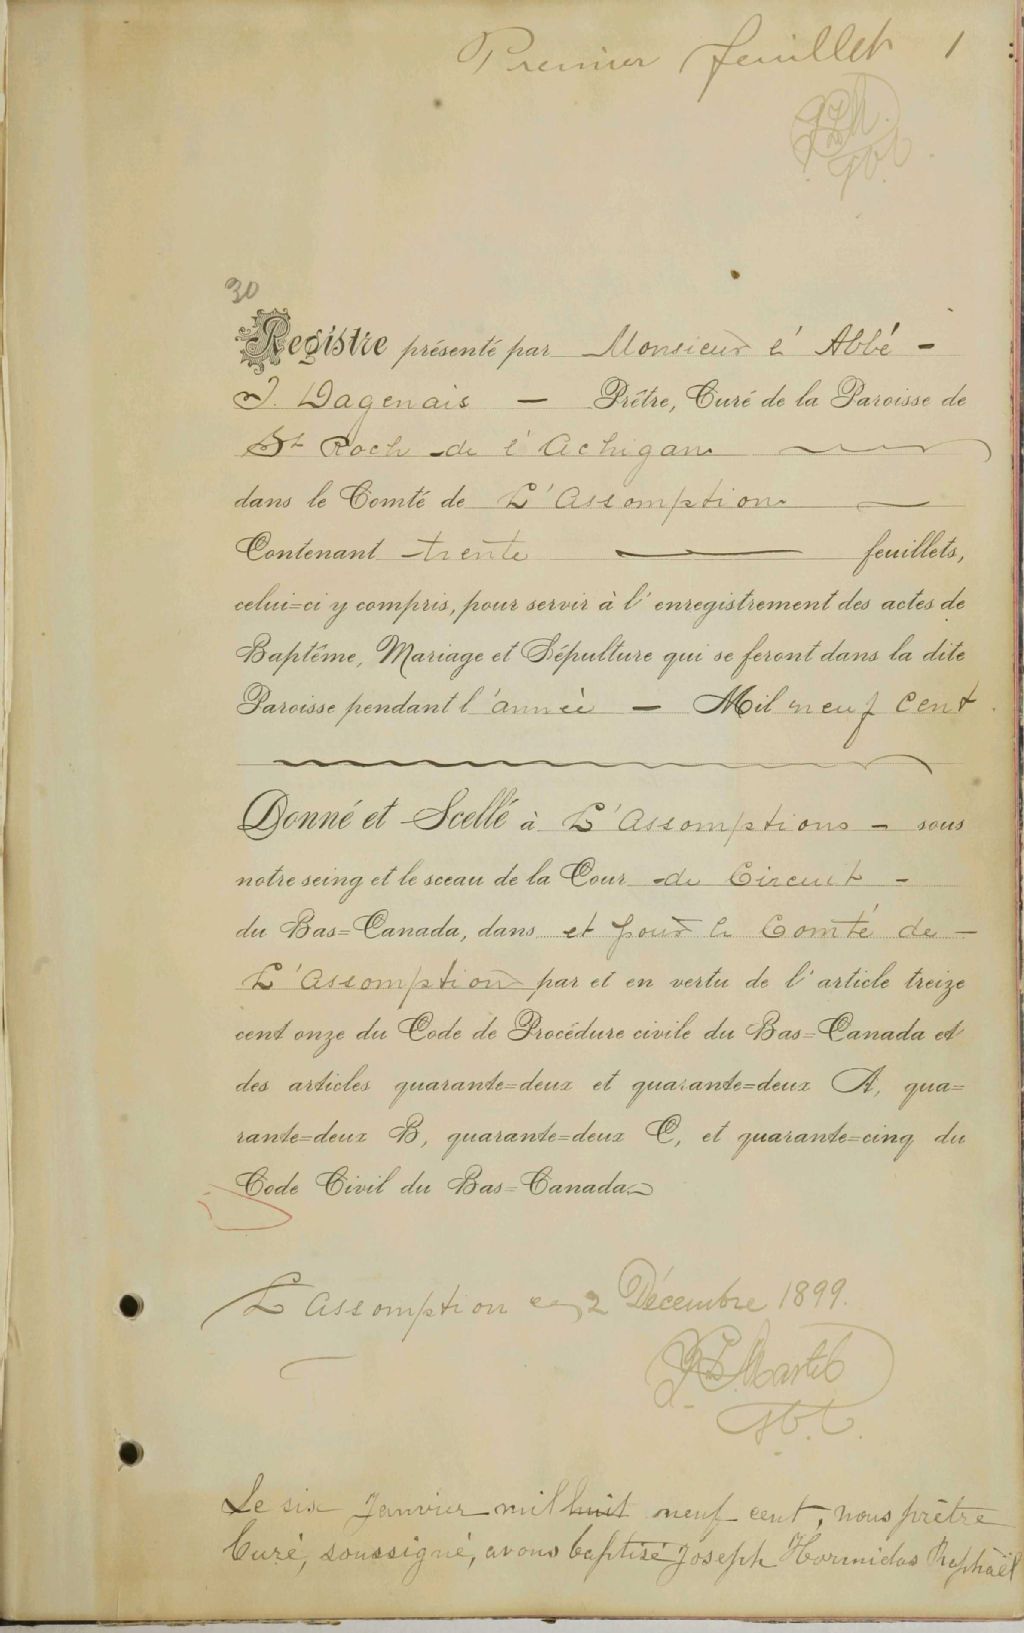 Premier feuillet 1
30
Registre présenté par Monsieur l'Abbé -
J. Dagenais — Prêtre, Curé de la Paroisse de
St Roch de l'Achigan
dans le Comté de L'Assomption
Contenant trente feuillets,
celui=ci y compris, pour servir à l'enregistrement des actes de
Baptême, Mariage et Sépulture qui se feront dans la dite
Paroisse pendant l'année — Mil neuf cent
Donné et Scellé à L'Assomption - sous
notre seing et le sceau de la Cour de Circuit -
du Bas=Canada, dans et pour le Comté de -
L'Assomption par et en vertu de l'article treize
cent onze du Code de Procédure civile du Bas=Canada et
des articles quarante=deux et quarante=deux A, qua=
rante=deux B, quarante=deux C, et quarante=cinq du
Code Civil du Bas=Canada
L'Assomption 2 Décembre 1899.
Martel
Le six Janvier mil huit neuf cent, nous prêtre
Curé, soussigné, avons baptisé Joseph Hormidas Raphaël